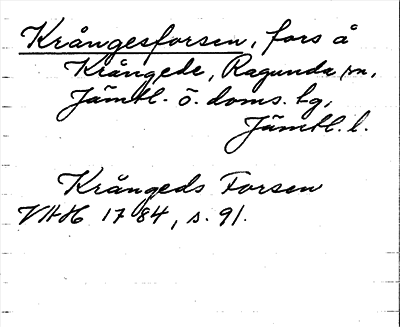 Krångesforsen, fors å
Krångede, Ragunda sn,
Jämtl. ö. doms. tg,
Jämtl. l.
Krångeds Forsen
VAH 1784, s. 91.